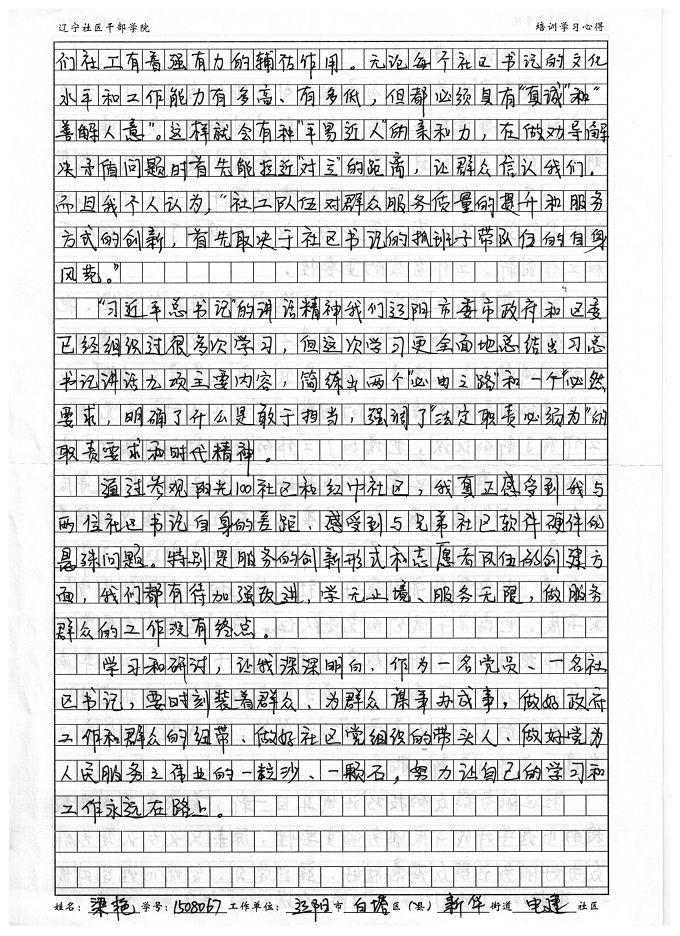 辽宁社区干部学院 培训学习心得
们社工有着强有力的辅佐作用。无论每个社区书记的文化
水平和工作能力有多高、有多低，但都必须具有“真诚”和“
善解人意”。这样就会有种“平易近人”的亲和力，在做劝导解
决矛盾问题时首先能拉近“对立”的距离，让群众信认我们。
而且我个人认为，“社工队伍对群众服务质量的提升和服务
方式的创新，首先取决于社区书记的抓班子带队伍的自身
风范。”
“习近平总书记”的讲话精神我们辽阳市委市政府和区委
已经组织过很多次学习，但这次学习更全面地总结出习总
书记讲话九项主要内容，简练出两个“必由之路”和一个“必然
要求，明确了什么是敢于担当，强调了“法定职责必须为”的
职责要求和时代精神。
通过参观阳光100社区和红巾社区，我真正感受到我与
两位社区书记自身的差距，感受到与兄弟社区软件硬件的
悬殊问题。特别是服务的创新形式和志愿者队伍的创建方
面，我们都有待加强改进，学无止境、服务无限，做服务
群众的工作没有终点。
学习和研讨，让我深深明白，作为一名党员、一名社
区书记，要时刻装着群众、为群众谋事办成事，做好政府
工作和群众的纽带、做好社区党组织的带头人、做好党为
人民服务之伟业的一粒沙、一颗石，努力让自己的学习和
工作永远在路上。
姓名：梁艳 学号：1508057 工作单位：辽阳市 白塔区（县） 新华街道 电建 社区